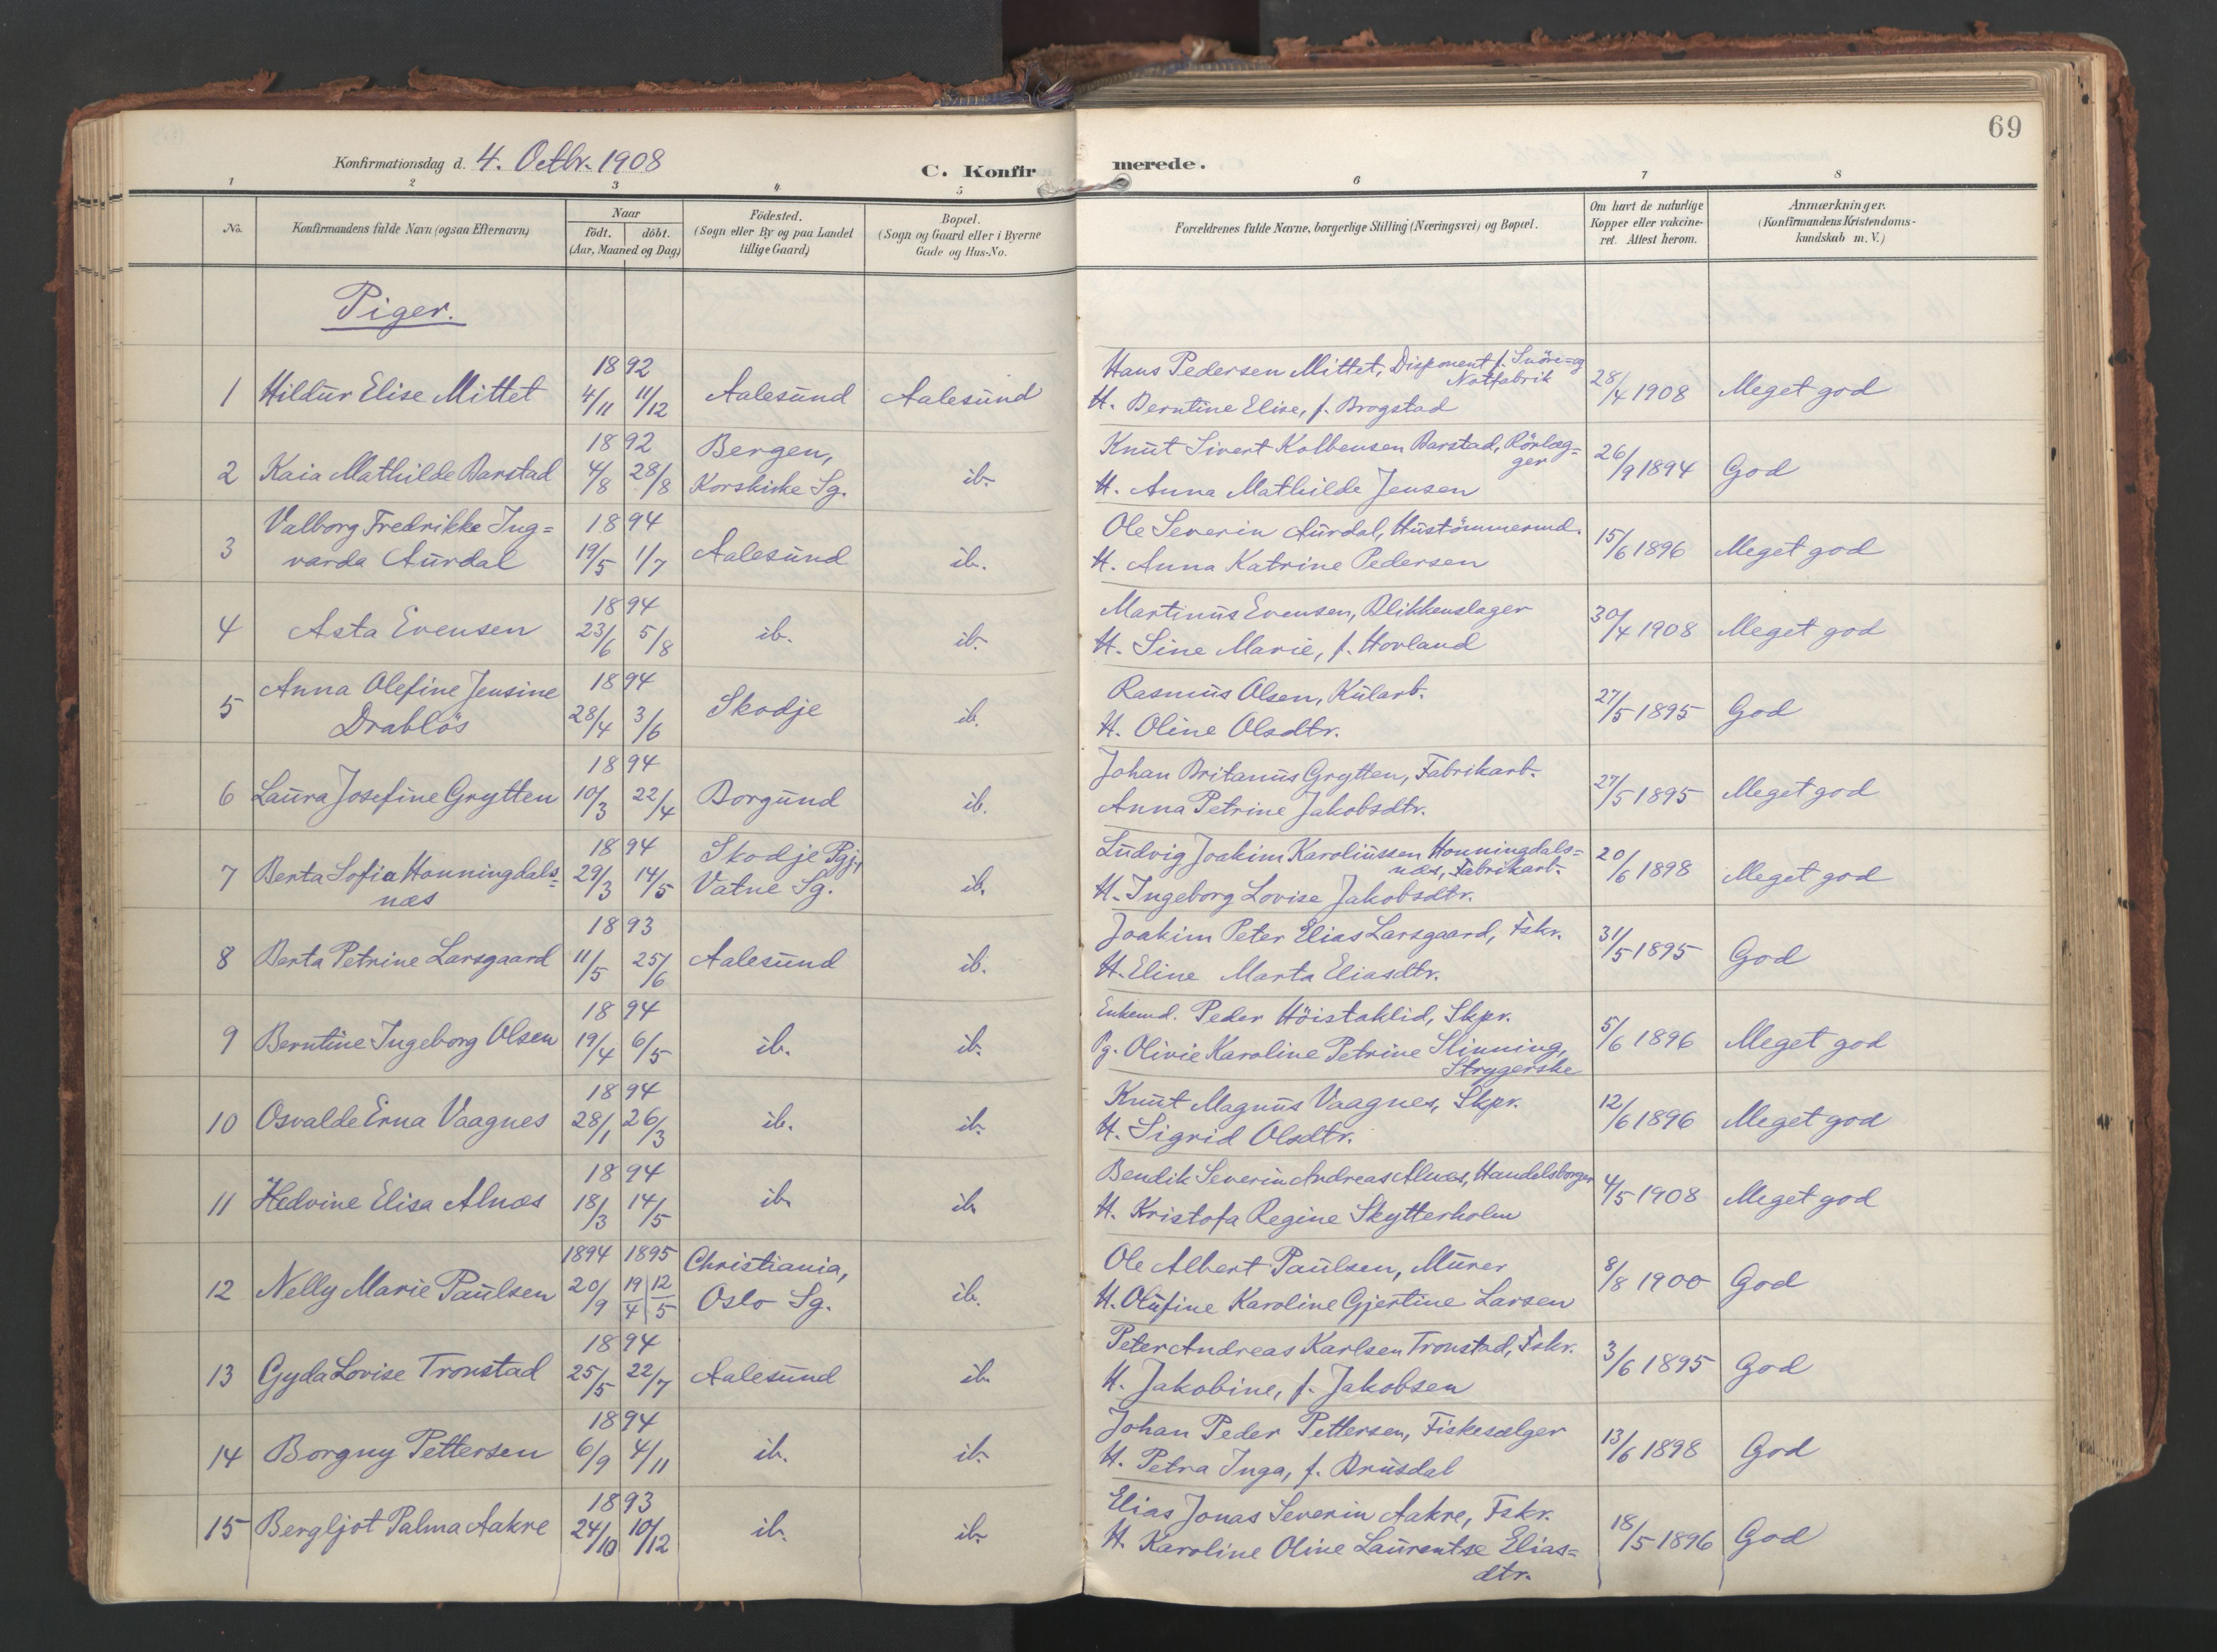 69
Konfirmationsdag d. 4. Octbr. 1908
C. Konfirmerede.
1 2 3 4 5 6 7 8
No.
Konfirmandens fulde Navn (ogsaa Efternavn)
Naar
födt. döbt.
(Aar, Maaned og Dag)
Födested.
(Sogn eller By og paa Landet
tillige Gaard)
Bopæl.
(Sogn og Gaard eller i Byerne
Gade og Hus-No.
Forældrenes fulde Navne, borgerlige Stilling (Næringsvei) og Bopæl.
Om havt de naturlige
Kopper eller vakcine-
ret. Attest herom.
Anmærkninger.
(Konfirmandens Kristendoms-
kundskab m. V.)
Piger.
1892
1 Hildur Elise Mittet 4/11 11/12 Aalesund Aalesund
Hans Pedersen Mittet, Disponent f. Snöre= og
Notfabrik
H. Berntine Elise, f. Brogstad
28/4 1908 Meget god
1892
2 Kaia Mathilde Barstad 4/8 28/8
Bergen,
Korskirke Sg.
ib.
Knut Sivert Kolbensen Barstad, Rörlæg=
ger
H. Anna Mathilde Jensen
26/9 1894 God
1894
3 Valborg Fredrikke Ing=
varda Aurdal
19/5 1/7 Aalesund ib.
Ole Severin Aurdal, Hustömmermd.
H. Anna Katrine Pedersen
15/6 1896 Meget god
1894
4 Asta Evensen 23/6 5/8 ib. ib.
Martinus Evensen, Blikkenslager
H. Sine Marie, f. Hovland
30/4 1908 Meget god
1894
5 Anna Olefine Jensine
Drablös
28/4 3/6 Skodje ib.
Rasmus Olsen, Kularb.
H. Oline Olsdtr.
27/5 1895 God
1894
6 Laura Josefine Grytten 10/3 22/4 Borgund ib.
Johan Britanus Grytten, Fabrikarb.
Anna Petrine Jakobsdtr.
27/5 1895 Meget god
1894
7 Berta Sofia Honningdals=
næs
29/3 14/5
Skodje Pgj.,
Vatne Sg.
ib.
Ludvig Joakim Karoliussen Honningdals=
næs, Fabrikarb.
H. Ingeborg Lovise Jakobsdtr.
20/6 1898 Meget god
1893
8 Berta Petrine Larsgaard 11/5 25/6 Aalesund ib.
Joakim Peter Elias Larsgaard, Fskr.
H. Eline Marta Eliasdtr.
31/5 1895 God
1894
9 Berntine Ingeborg Olsen 19/4 6/5 ib. ib.
Enkemd. Peder Höistaklid, Skpr.
Pg. Olivie Karoline Petrine Slinning,
Strygerske
5/6 1896 Meget god
1894
10 Osvalde Erna Vaagnes 28/1 26/3 ib. ib.
Knut Magnus Vaagnes, Skpr.
H. Sigrid Olsdtr.
12/6 1896 Meget god
1894
11 Hedvine Elisa Alnæs 18/3 14/5 ib. ib.
Bendik Severin Andreas Alnæs, Handelsborger
H. Kristofa Regine Skytterholm
4/5 1908 Meget god
1894 1895
12 Nelly Marie Paulsen 20/9 19/4 12/5
Christiania,
Oslo Sg.
ib.
Ole Albert Paulsen, Murer
H. Olufine Karoline Gjertine Larsen
8/8 1900 God
1894
13 Gyda Lovise Tronstad 25/5 22/7 Aalesund ib.
Peter Andreas Karlsen Tronstad, Fskr.
H. Jakobine, f. Jakobsen
3/6 1895 God
1894
14 Borgny Pettersen 6/9 4/11 ib. ib.
Johan Peder Pettersen, Fiskesælger
H. Petra Inga, f. Brusdal
13/6 1898 God
1893
15 Bergljot Palma Aakre 24/10 10/12 ib. ib.
Elias Jonas Severin Aakre, Fskr.
H. Karoline Oline Laurentse Elias=
dtr.
18/5 1896 God